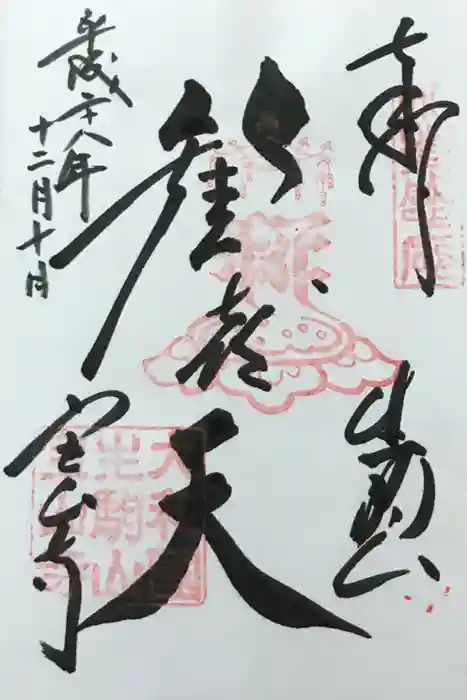 奉拝
生駒山
歓喜天
平成二十八年
十二月十日
宝山寺
大和國
生駒山
寳山寺